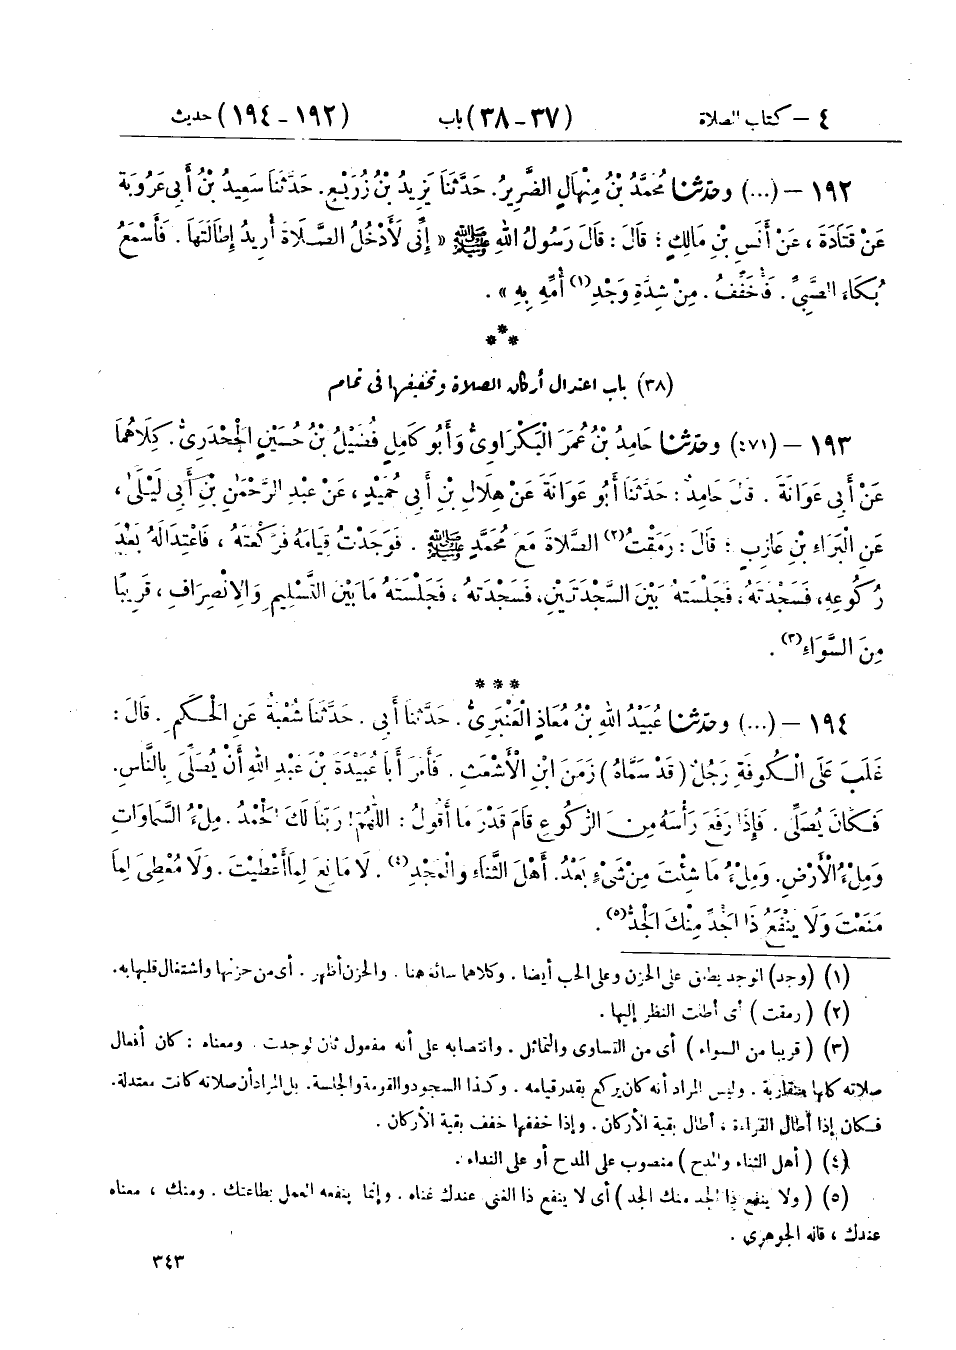 ٤ – كتاب الصلاة (٣٧-٣٨) باب (١٩٢-١٩٤) حديث
١٩٢ – (...) وحدثنا مُحَمَّدُ بْنُ مِنْهَالٍ الضَّرِيرُ. حَدَّثَنَا يَزِيدُ بْنُ زُرَيْعٍ. حَدَّثَنَا سَعِيدُ بْنُ أَبِي عَرُوبَةَ
عَنْ قَتَادَةَ ، عَنْ أَنَسِ بْنِ مَالِكٍ ؛ قَالَ : قَالَ رَسُولُ اللهِ ﷺ « إِنِّي لَأَدْخُلُ الصَّلَاةَ أُرِيدُ إِطَالَتَهَا . فَأَسْمَعُ
بُكَاءَ الصَّبِيِّ . فَأُخَفِّفُ . مِنْ شِدَّةِ وَجْدِ(١) أُمِّهِ بِهِ » .
***
(٣٨) باب اعتدال أركان الصلاة وتخفيفها فى تمام
١٩٣ – (٤٧١) وحدثنا حَامِدُ بْنُ عُمَرَ الْبَكْرَاوِىُّ وَأَبُو كَامِلٍ فُضَيْلُ بْنُ حُسَيْنٍ الْجَحْدَرِىُّ. كِلَاهُمَا
عَنْ أَبِي عَوَانَةَ . قَالَ حَامِدٌ : حَدَّثَنَا أَبُو عَوَانَةَ عَنْ هِلَالِ بْنِ أَبِي حُمَيْدٍ ، عَنْ عَبْدِ الرَّحْمَٰنِ بْنِ أَبِي لَيْلَىٰ ،
عَنِ الْبَرَاءِ بْنِ عَازِبٍ ؛ قَالَ : رَمَقْتُ(٢) الصَّلَاةَ مَعَ مُحَمَّدٍ ﷺ . فَوَجَدْتُ قِيَامَهُ فَرَكْعَتَهُ ، فَاعْتِدَالَهُ بَعْدَ
رُكُوعِهِ، فَسَجْدَتَهُ ، فَجَلْسَتَهُ بَيْنَ السَّجْدَتَيْنِ، فَسَجْدَتَهُ ، فَجَلْسَتَهُ مَا بَيْنَ التَّسْلِيمِ وَالِانْصِرَافِ ، قَرِيبًا
مِنَ السَّوَاءِ(٣) .
***
١٩٤ – (...) وحدثنا عُبَيْدُ اللهِ بْنُ مُعَاذٍ الْعَنْبَرِىُّ . حَدَّثَنَا أَبِي . حَدَّثَنَا شُعْبَةُ عَنِ الْحَكَمِ . قَالَ :
غَلَبَ عَلَى الْكُوفَةِ رَجُلٌ (قَدْ سَمَّاهُ) زَمَنَ ابْنِ الْأَشْعَثِ . فَأَمَرَ أَبَا عُبَيْدَةَ بْنَ عَبْدِ اللهِ أَنْ يُصَلِّىَ بِالنَّاسِ.
فَكَانَ يُصَلِّى . فَإِذَا رَفَعَ رَأْسَهُ مِنَ الرُّكُوعِ قَامَ قَدْرَ مَا أَقُولُ : اللَّهُمَّ! رَبَّنَا لَكَ الْحَمْدُ. مِلْءُ السَّمَاوَاتِ
وَمِلْءُ الْأَرْضِ. وَمِلْءُ مَا شِئْتَ مِنْ شَىْءٍ بَعْدُ. أَهْلَ الثَّنَاءِ وَالْمَجْدِ(٤) . لَا مَانِعَ لِمَا أَعْطَيْتَ . وَلَا مُعْطِىَ لِمَا
مَنَعْتَ وَلَا يَنْفَعُ ذَا الْجَدِّ مِنْكَ الْجَدُّ(٥) .
(١) (وجد) الوجد يطلق على الحزن وعلى الحب أيضا . وكلاهما سائغ هنا . والحزن أظهر . أى من حزنها واشتغال قلبها به.
(٢) ( رمقت ) أى أطلت النظر إليها .
(٣) ( قريبا من السواء ) أى من التساوى والتماثل . وانتصابه على أنه مفعول ثان لوجدت . ومعناه : كان أفعال
صلاته كلها متقاربة . وليس المراد أنه كان يركع بقدر قيامه . وكذا السجود والقومة والجلسة. بل المراد أن صلاته كانت معتدلة.
فكان إذا أطال القراءة ، أطال بقية الأركان . وإذا خففها خفف بقية الأركان .
(٤) ( أهل الثناء والمدح ) منصوب على المدح أو على النداء .
(٥) ( ولا ينفع ذا الجد منك الجد ) أى لا ينفع ذا الغنى عندك غناه . وإنما ينفعه العمل بطاعتك . ومنك ، معناه
عندك ، قاله الجوهرى .
٣٤٣